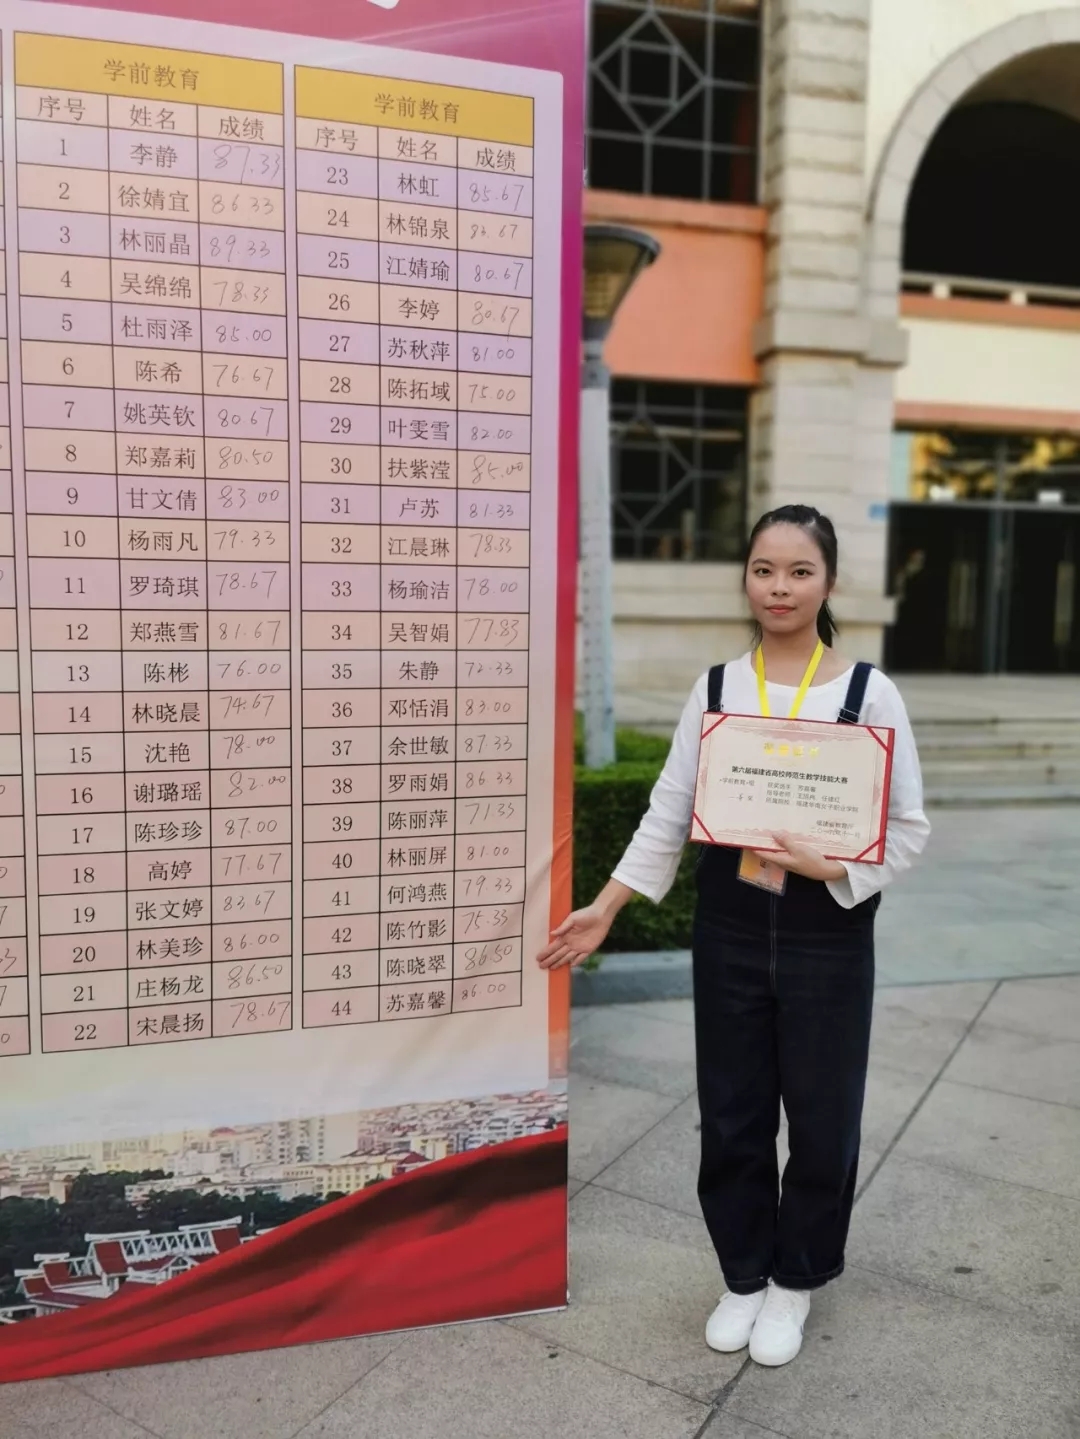 学前教育
序号 姓名 成绩
1 李静 87.33
2 徐婧宜 86.33
3 林丽晶 89.33
4 吴绵绵 78.33
5 杜雨泽 85.00
6 陈希 76.67
7 姚英钦 80.67
8 郑嘉莉 80.50
9 甘文倩 83.00
10 杨雨凡 79.33
11 罗琦琪 78.67
12 郑燕雪 81.67
13 陈彬 76.00
14 林晓晨 74.67
15 沈艳 78.00
16 谢璐瑶 82.00
17 陈珍珍 87.00
18 高婷 77.67
19 张文婷 83.67
20 林美珍 86.00
21 庄杨龙 86.50
22 宋晨扬 78.67
学前教育
序号 姓名 成绩
23 林虹 85.67
24 林锦泉 83.67
25 江婧瑜 80.67
26 李婷 80.67
27 苏秋萍 81.00
28 陈拓域 75.00
29 叶雯雪 82.00
30 扶紫滢 85.00
31 卢苏 81.33
32 江晨琳 78.33
33 杨瑜洁 78.00
34 吴智娟 77.83
35 朱静 72.33
36 邓恬涓 83.00
37 余世敏 87.33
38 罗雨娟 86.33
39 陈丽萍 71.33
40 林丽屏 81.00
41 何鸿燕 79.33
42 陈竹影 75.33
43 陈晓翠 86.50
44 苏嘉馨 86.00
第六届福建省高校师范生教学技能大赛
学前教育 组
获奖选手：苏嘉馨
指导老师：
所属院校：福建华南女子职业学院
福建省教育厅